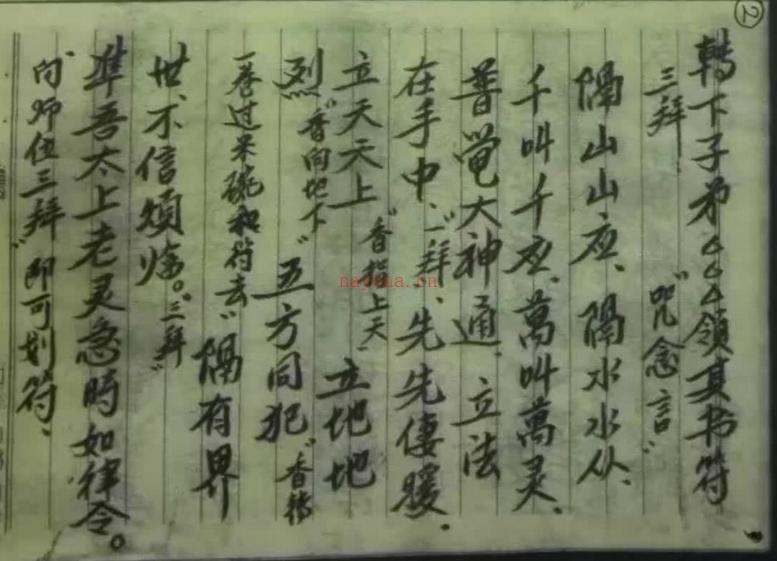 ②
轉下子矛△△△領其书符
三拜 "咒念言"
隔山山应、隔水水从、
千叫千应、萬叫萬灵、
普鸾大神通、立法
在手中、"一拜"、先先傳暖、
立天天上 "香指上天" 立地地
烈 "香向地下" 五方同犯 "香转
一卷过米碗和符去" 隔有界
世不信煩恼。"三拜"
準吾太上老灵急時如律令。
"向师位三拜" 即可划符、
navcha.cn